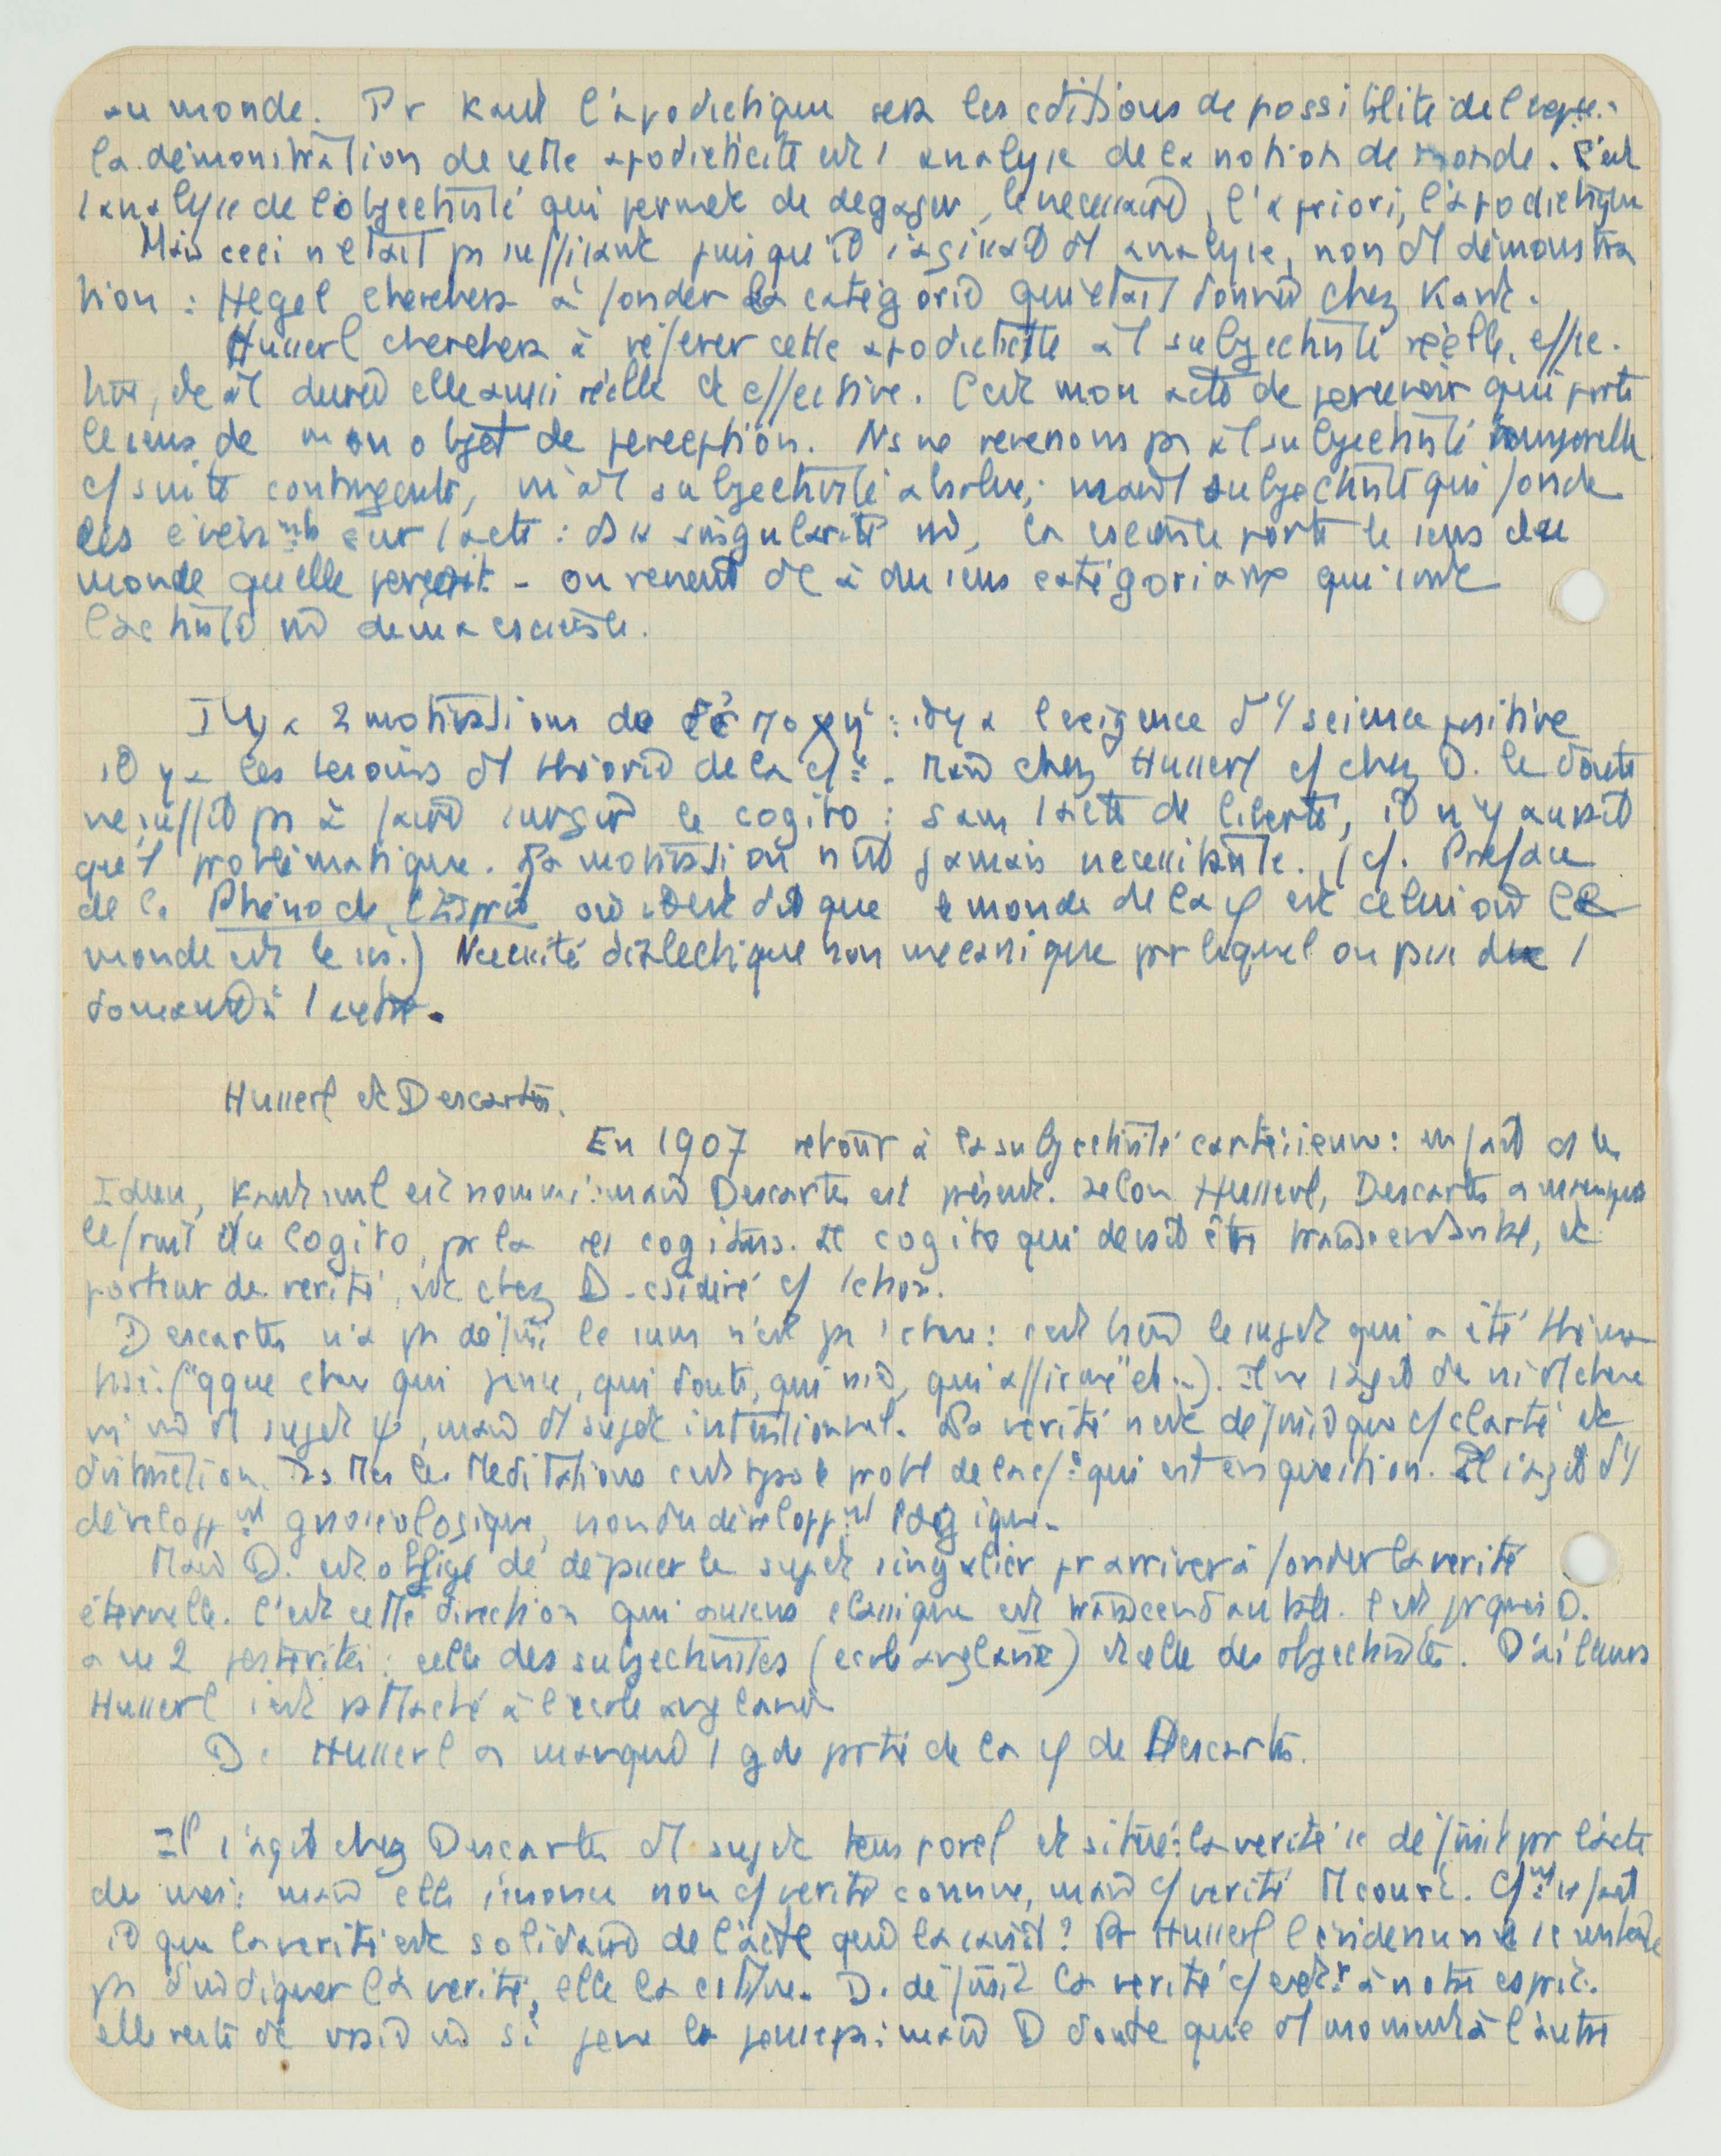 au monde. Pr Kant l'apodictique sera les cditions de possibilité de l'expce.
la démonstration de cette apodicticité est l'analyse de la notion de monde. C'est
l'analyse de l'objectivité qui permet de dégager le nécessaire, l'a priori, l'apodictique
Mais ceci n'était ps suffisant puisqu'il s'agissait d'1 analyse, non d'1 démonstra
tion : Hegel cherchera à fonder la catégorie qui était donnée chez Kant.
Husserl cherchera à référer cette apodicticité à 1 subjectivité réelle, effec.
tive, et à 1 durée elle aussi réelle et effective. C'est mon acte de percevoir qui porte
le sens de mon objet de perception. Ns ne revenons ps à 1 subjectivité temporelle
cf suite contingente, ni à 1 subjectivité absolue; mais à 1 subjectivité qui fonde
les sur l'acte : ds sa singularité mê, la cscience porte le sens du
monde qu'elle perçoit - on revient dc à du sens catégoriaux qui sont
l'activité mê de ma cscience.
Il y a 2 motivations de l'ἐποχή : il y a l'exigence d'1 science positive
il y a les besoins d'1 théorie de la cf ce. Mais chez Husserl cf chez D. le doute
ne suffit ps à faire surgir le cogito : sans l'acte de liberté, il n'y aurait
qu'1 problématique. La motivation n'est jamais nécessitante. (cf. Préface
de la Phéno de l'Esprit où il est dit que le monde de la φ est celui où le
monde est le .) Nécessité dialectique non mécanique par laquelle on passe de 1
domaine à l'autre.
Husserl et Descartes.
En 1907 retour à la subjectivité cartésienne : en fait ds les
Ideen, Kant seul est nommé : mais Descartes est présent. Selon Husserl, Descartes a manqué
le fruit du Cogito, pr la res cogitans. Le cogito qui devait être transcendantal, et
porteur de vérité, est chez D. csidéré cf 1 chose.
Descartes n'a ps défini le sum n'est ps 1 chose : c'est bien le sujet qui a été théma
tisé ("qque chose qui pense, qui doute, qui nie, qui affirme" etc..). Il ne s'agit dc ni d'1 chose
ni mê d'1 sujet ψ, mais d'1 sujet intentionnel. La vérité n'est définie que cf clarté et
distinction. Ds ttes les Méditations c'est le probl de la cf ce qui est en question. Il s'agit d'1
développmt gnoséologique, non du développmt logique.
Mais D. est obligé de dépasser le sujet singulier pr arriver à fonder la vérité
éternelle. C'est cette direction qui au sens classique est transcendantale. C'est prquoi D.
a eu 2 postérités : celle des subjectivistes (école anglaise) et celle des objectivistes. D'ailleurs
Husserl s'est rattaché à l'école anglaise
Dc Husserl a manqué 1 gde partie de la φ de Descartes.
Il s'agit chez Descartes d'1 sujet temporel et situé : la vérité se définit pr l'acte
de : mais elle s'énonce non cf vérité connue, mais cf vérité tt court. Cfmt se fait
il que la vérité est solidaire de l'acte qui la saisit? Pr Husserl l'évidence ne se contente
ps d'indiquer la vérité, elle la cstitue. D. définit la vérité cf extre à notre esprit.
elle reste dc vraie mê si je ne la pense ps : mais D doute que d'1 moment à l'autre